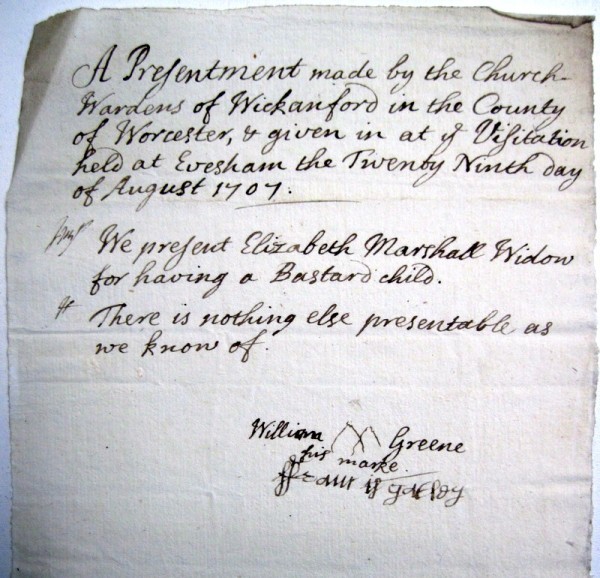 A Presentment made by the Church-
Wardens of Wickanford in the County
of Worcester, & given in at ye Visitation
held at Evesham the Twenty Ninth day
of August 1707.
We present Elizabeth Marshall Widow
for having a Bastard child.
There is nothing else presentable as
we know of.
William Greene
his marke.